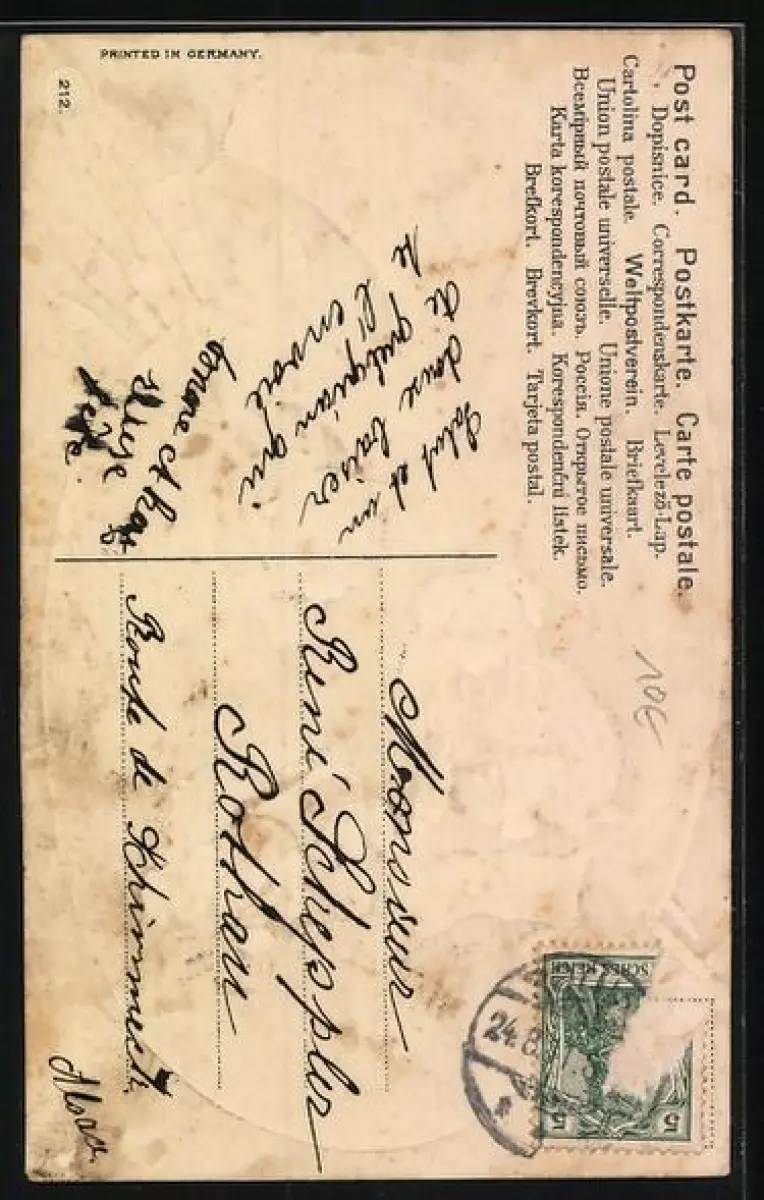 Post card. Postkarte. Carte postale.
Dopisnice. Correspondenskarte. Levelező-Lap.
Cartolina postale. Weltpostverein. Briefkaart.
Union postale universelle. Unione postale universale.
Всемірный почтовый союзъ. Россія. Открытое письмо.
Karta korespondencyjna. Korespondenční listek.
Brefkort. Brevkort. Tarjeta postal.
Salut et un
doux baiser
de quelqu'un qui
te l'envoie
Monsieur
René Scheppler
Rothau
Route de Schirmeck
Alsace
PRINTED IN GERMANY.
212.
10€
SCHES REICH
5 5
24.8